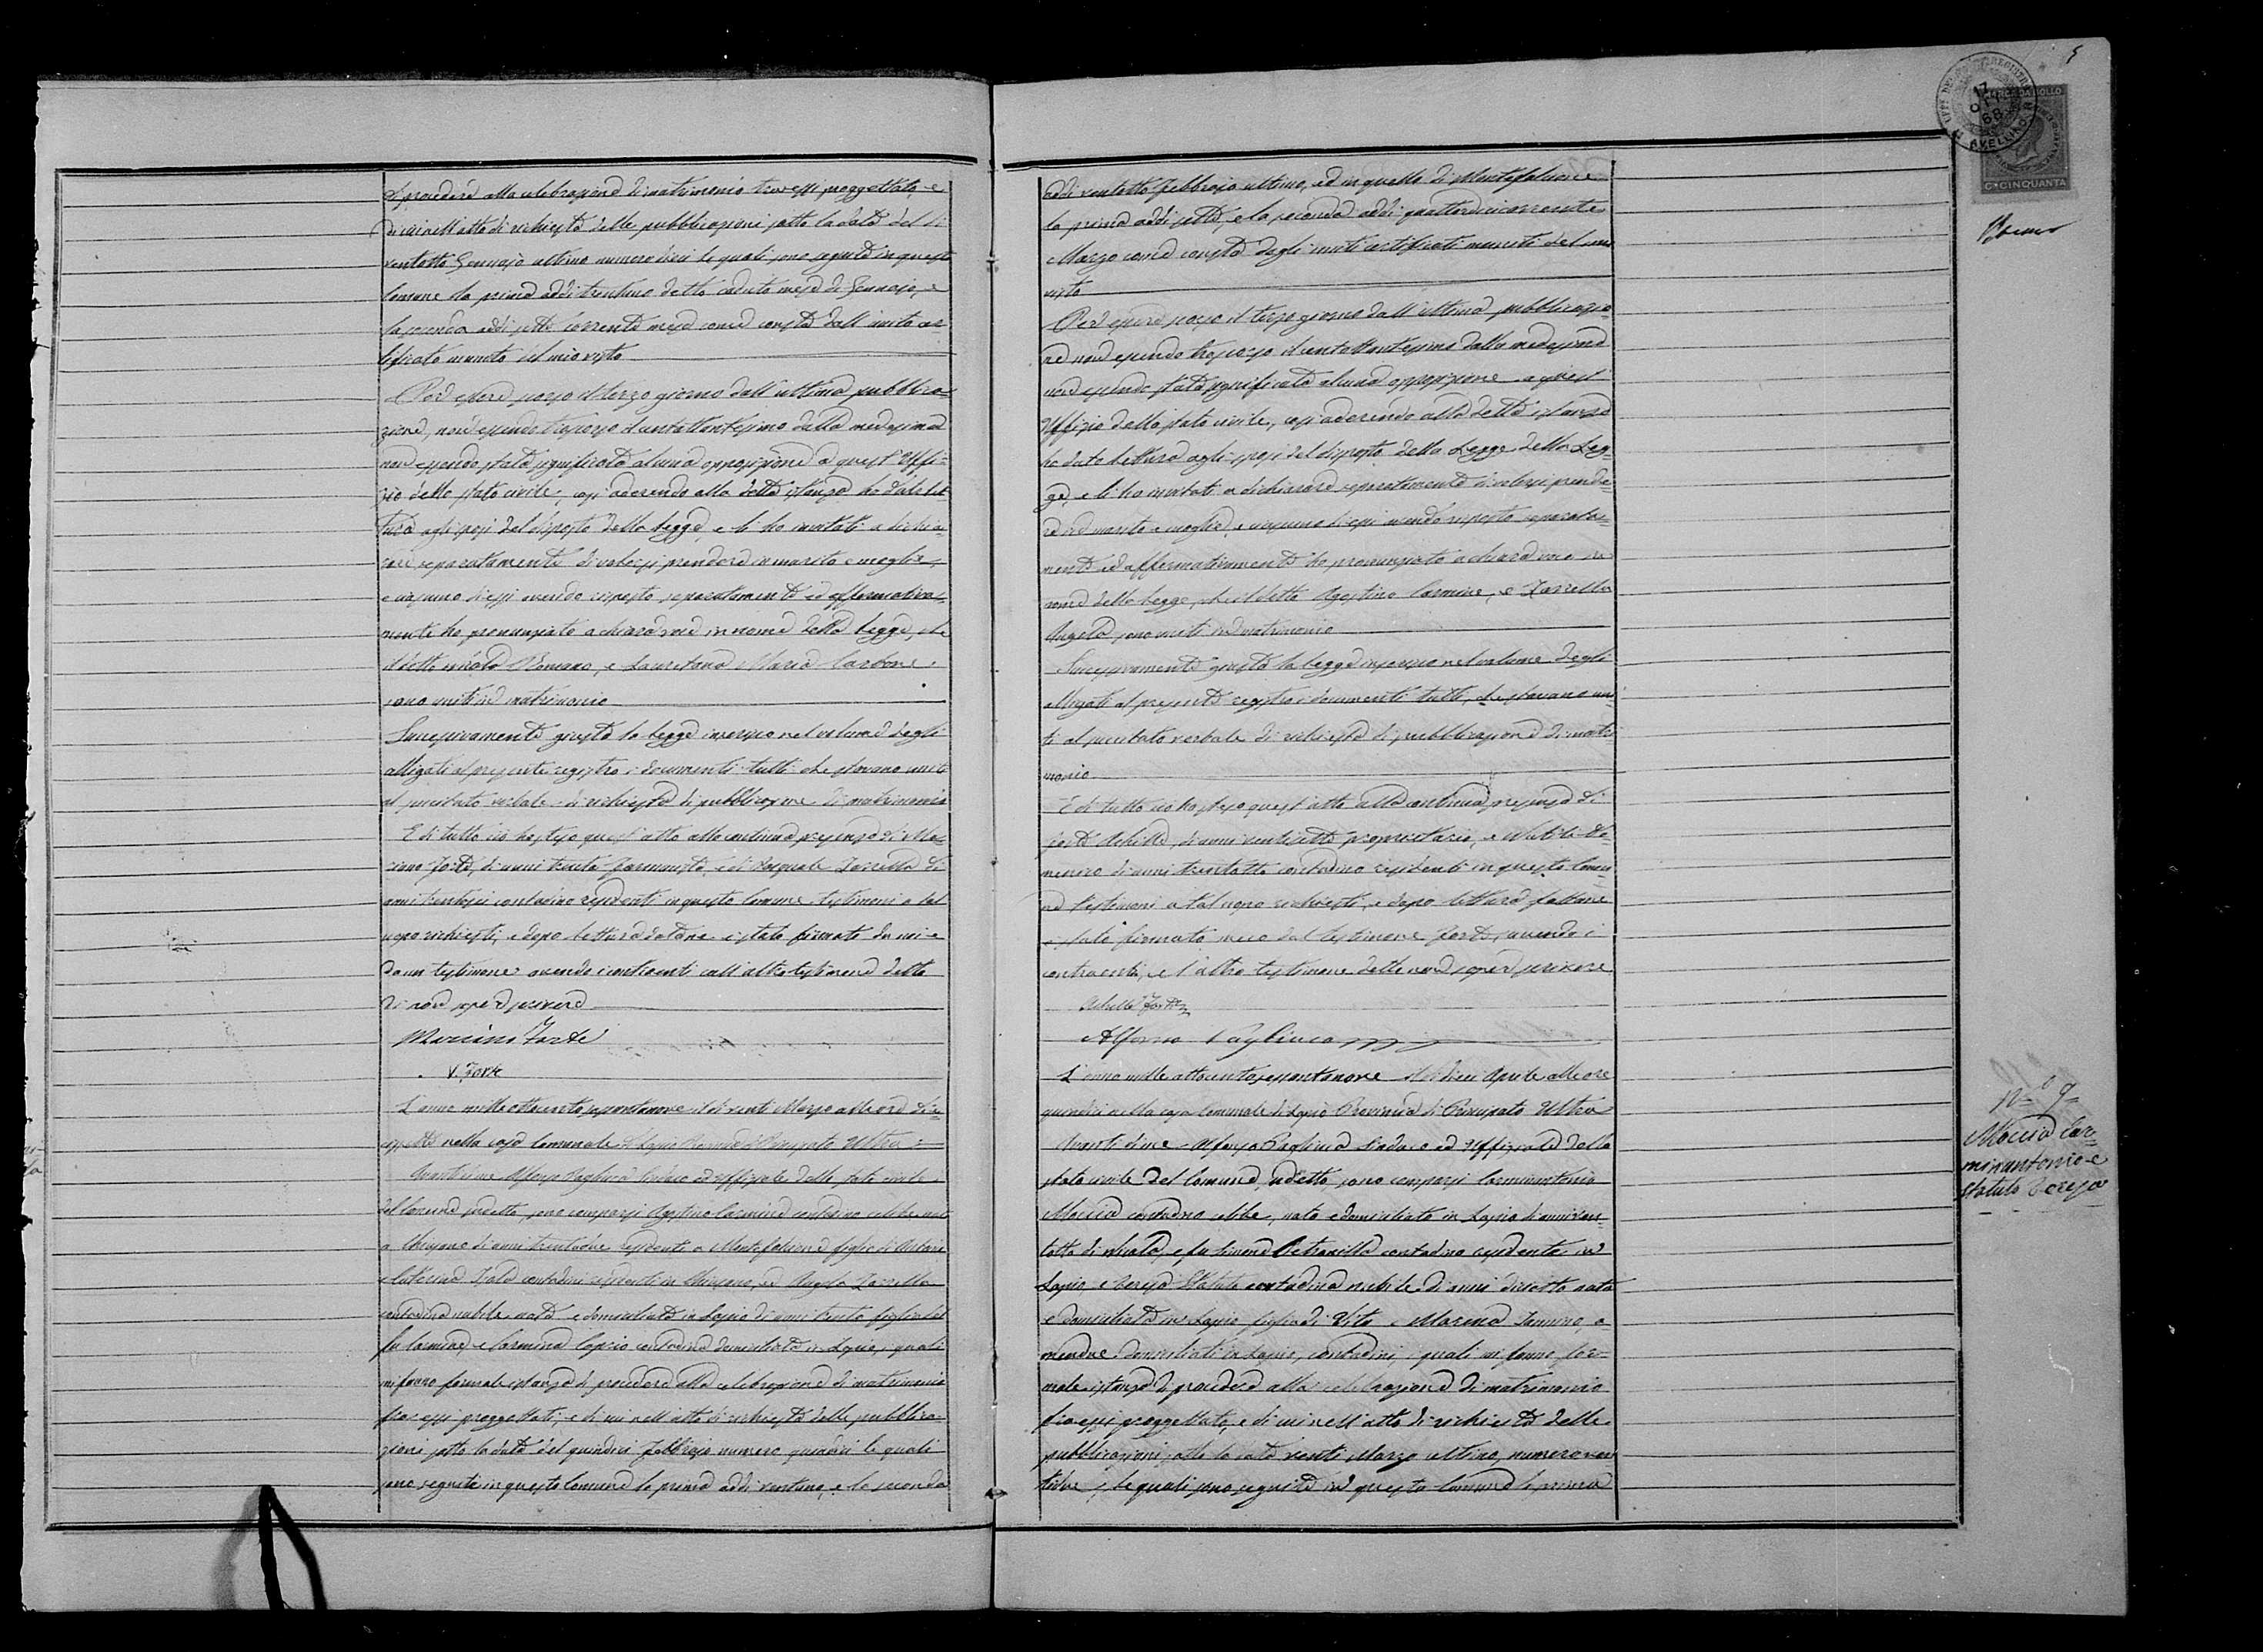 di procedere alla celebrazione di matrimonio tra essi proggettato e
di cui nell'atto di richiesta delle pubblicazioni sotto la data del dì
ventotto Gennajo ultimo numero dieci le quali sono seguite in questo
Comune la prima addì trentuno detto caduto mese di Gennajo, e
la seconda addì sette corrente mese come consta dall'unito cer=
tificato munito del mio visto
Per essere scorso il terzo giorno dall'ultima pubblica=
zione, non essendo trascorso il centottantesimo dalla medesima
non essendo stata significata alcuna opposizione a quest'Uffi=
zio dello stato civile, così aderendo alla detta istanza ho dato let=
tura agli sposi del disposto della legge, e li ho invitati a dichia=
rare separatamente di volersi prendere in marito e moglie,
e ciascuno di essi avendo risposto separatamente ed affermativa=
mente ho pronunziato a chiara voce in nome della legge, che
il detto Nicola Romano, e Lauretana Maria Carbone
sono uniti in matrimonio
Successivamente giusta la legge inserisco nel volume degli
alligati al presente registro i documenti tutti che stavano uniti
al precitato verbale di richiesta di pubblicazione di matrimonio
E di tutto ciò ho steso quest'atto alla continua presenza di Ma=
riano Forte, di anni trenta Farmacista, e di Pasquale Zarrella di
anni trentasei contadino residenti in questo Comune testimoni a tal
uopo richiesti, e dopo lettura datane è stato firmato da me e
da un testimone avendo i contraenti e all'altro testimone detto
di non saper scrivere
Mariano Forte
V. Forte
L'anno mille ottocento sessantanove il dì venti Marzo alle ore di=
cessette nella casa Comunale di Lapio Provincia di Principato Ultra
Avanti di me Alfonso Pagliuca Sindaco ed Uffiziale dello stato civile
del Comune suddetto, sono comparsi Agostino Carmine contadino celibe nato
a Chiusano di anni trentadue residente a Montefalcione figlio di
e Caterina contadini residenti in Chiusano, ed Angela Zarrella
contadina nubile nata e domiciliata in Lapio di anni trenta figlia del
fu Carmine, e Carmina Caprio contadina domiciliata in Lapio, i quali
mi fanno formale istanza di procedere alla celebrazione di matrimonio
fra essi proggettati, e di cui nell'atto di richiesta delle pubblica=
zioni sotto la data del quindici Febbrajo numero quindici le quali
sono seguite in questo Comune la prima addì ventuno, e la seconda
5
17 OTT 68
AVELLINO
MARCA DA BOLLO
C. CINQUANTA
addì ventotto Febbrajo ultimo, ed in quello di Montefalcione
la prima addì sette, e la seconda addì quattordici corrente
Marzo come consta dagli uniti certificati muniti del mio
visto
Per essere scorso il terzo giorno dall'ultima pubblicazio=
ne non essendo trascorso il centottantesimo dalla medesima
non essendo stata significata alcuna opposizione a quest'
Uffizio dello stato civile, così aderendo alla detta istanza
ho dato lettura agli sposi del disposto della Legge della Leg=
ge, e li ho invitati a dichiarare separatamente di volersi prende=
re in marito e moglie, e ciascuno di essi avendo risposto separata=
mente ed affermativamente ho pronunziato a chiara voce in
nome della legge, che il detto Agostino Carmine, e Zarrella
Angela sono uniti in matrimonio
Successivamente giusta la legge inserisco nel volume degli
alligati al presente registro i documenti tutti, che stavano uni=
ti al precitato verbale di richiesta di pubblicazione di matri=
monio
E di tutto ciò ho steso quest'atto alla continua presenza di
Forte Achille, di anni ventisette proprietario, e Do=
menico di anni trentotto contadino residenti in questo Comu=
ne testimoni a tal uopo richiesti, e dopo lettura fattane
è stato firmato meco dal testimone Forte, avendo i
contraenti, e l'altro testimone detto non saper scrivere
Achille Forte
Alfonso Pagliuca
L'anno mille ottocento sessantanove il dì dieci Aprile alle ore
quindici nella casa Comunale di Lapio Provincia di Principato Ultra
Avanti di me Alfonso Pagliuca Sindaco ed Uffiziale dello
stato civile del Comune suddetto, sono comparsi Carminantonio
Moccia contadino celibe, nato e domiciliato in Lapio di anni ven=
totto di Nicola, e fu Simona Petracilla contadino residente in
Lapio, e Teresa Statuto contadina nubile di anni diciotto nata
e domiciliata in Lapio figlia di Vito e Marina Iannino, a=
mendue domiciliati in Lapio, contadini, i quali mi fanno for=
male istanza di procedere alla celebrazione di matrimonio
fra essi proggettato, e di cui nell'atto di richiesta delle
pubblicazioni sotto la data venti Marzo ultimo, numero ven=
tidue, le quali sono seguite in questo Comune la prima
N.o 9
Moccia Car=
minantonio e
Statuto Teresa